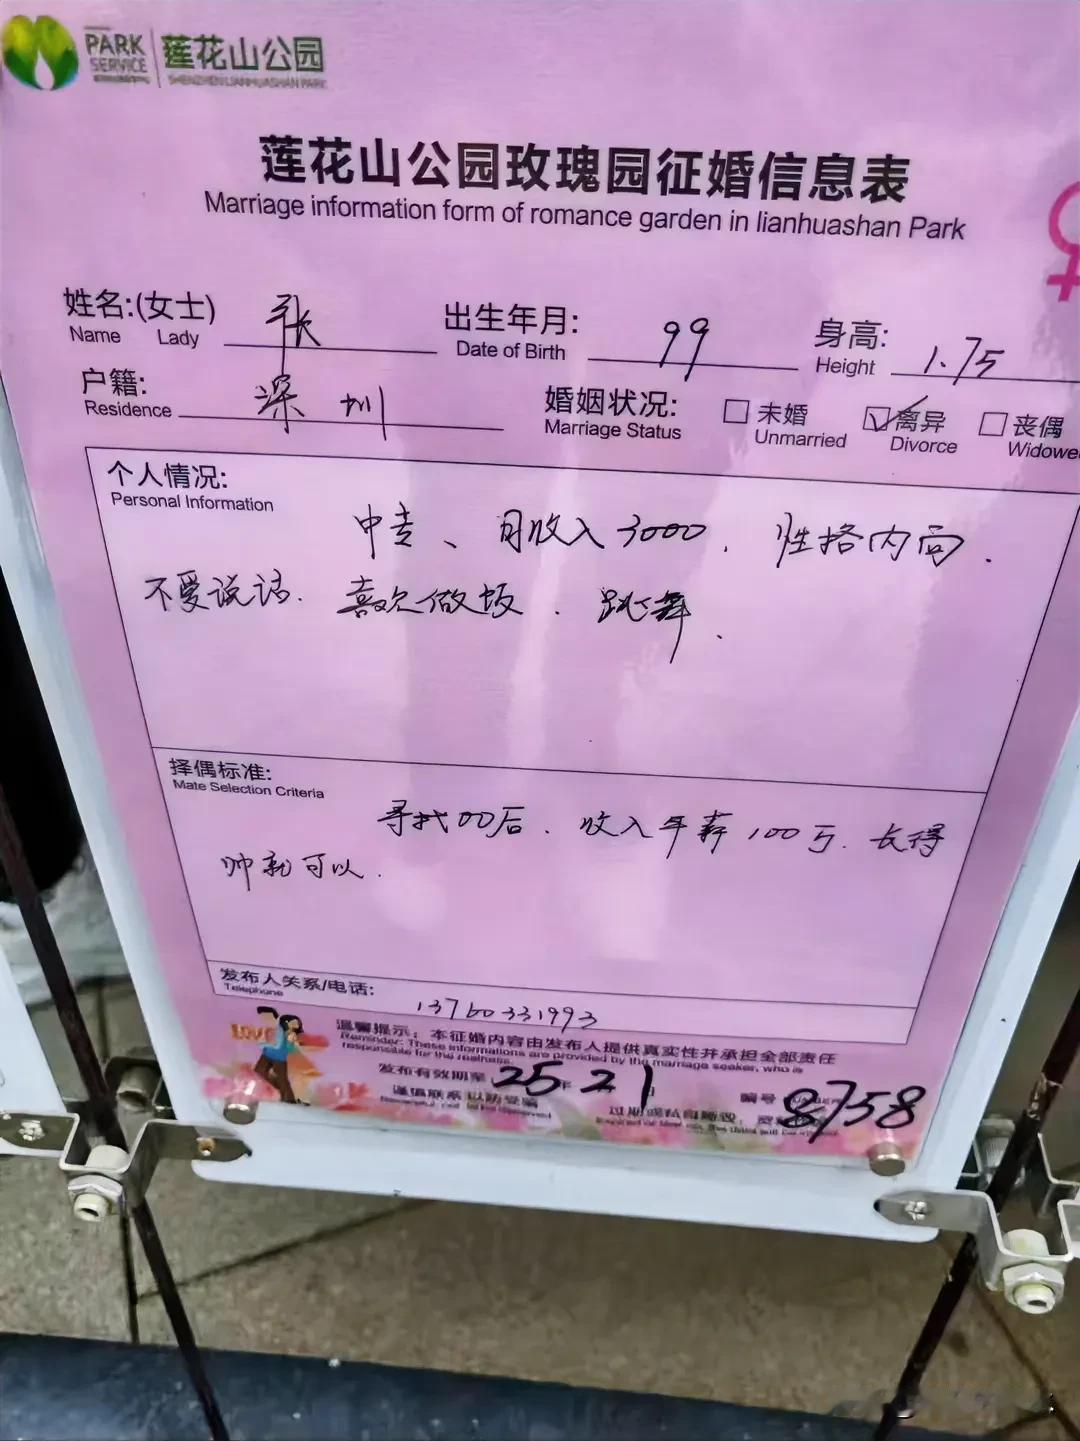 PARK SERVICE 莲花山公园
SHENZHEN LIANHUASHAN PARK
莲花山公园玫瑰园征婚信息表
Marriage information form of romance garden in lianhuashan Park
姓名:(女士) 张 出生年月: 99 身高: 1.75
Name Lady Date of Birth Height
户籍: 深圳 婚姻状况: 未婚 离异 丧偶
Residence Marriage Status Unmarried Divorce Widowe
个人情况:
Personal Information
中专、月收入3000.性格内向.
不爱说话.喜欢做饭.跳舞.
择偶标准:
Mate Selection Criteria
寻找00后.收入年薪100万.长得
帅就可以.
发布人关系/电话: 13760331993
Telephone
LOVE
温馨提示:本征婚内容由发布人提供真实性并承担全部责任
Reminder: These informations are provided by the marriage seeker, who is
responsible for the realness.
发布有效期至 25年 2 1 编号 8758
谨慎联系 以防受骗